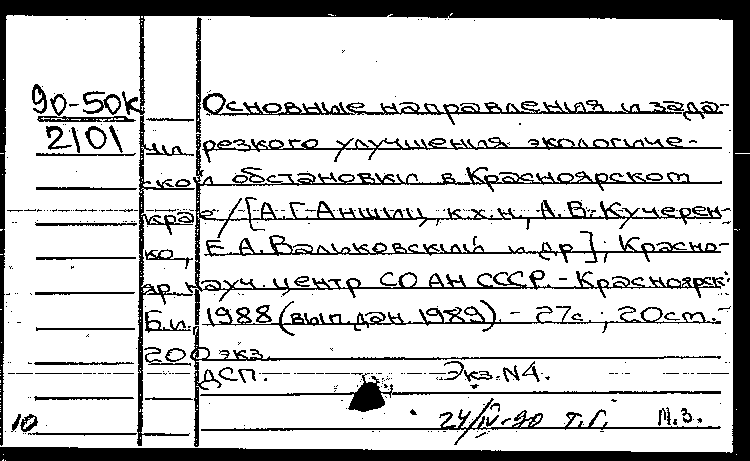 90-50к Основные направления и зада-
2101 чи резкого улучшения экологиче-
ской обстановки в Красноярском
крае / [А.Г.Аншиц, к.х.н., А.В. Кучерен-
ко, Е.А.Вальковский и др]; Красно-
яр. науч. центр СО АН СССР. - Красноярск:
Б.и., 1988 (вып.дан. 1989). - 27с.; 20см. -
200 экз.
ДСП. Экз.N4.
10 24/IV-90 Т.Г. М.З.